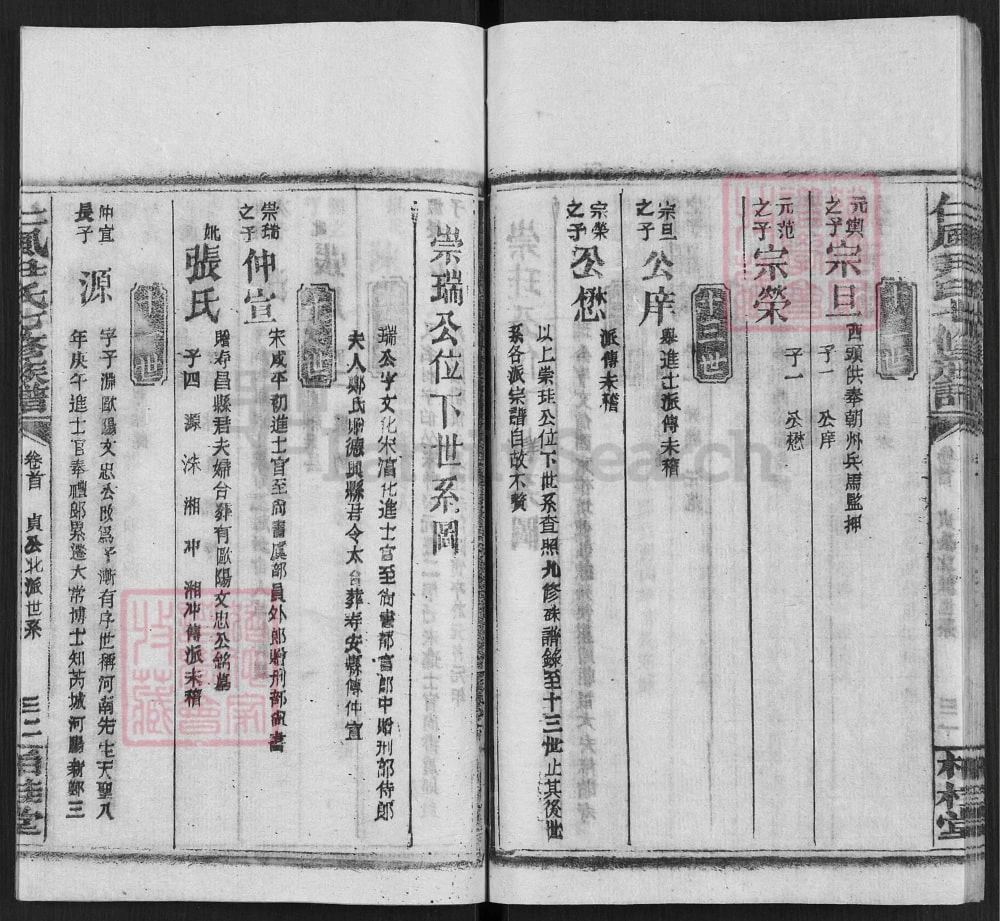 元興之子
宗旦
西頭供奉朝州兵馬監押
子一　公庠
元范之子
宗榮
子一　公懋
宗旦之子
公庠
舉進士派傳未稽
宗榮之子
公懋
派傳未稽
以上崇珪公位下世系查照九修硃譜錄至十三世止其後世
系各派宗譜自故不贅
崇瑞公位下世系圖
瑞公字文化宋淳化進士官至尚書都官郎中贈刑部侍郎
夫人鄭氏贈德興縣君令太台葬壽安縣傳仲宣
崇瑞之子
仲宣
宋咸平初進士官至尚書虞部員外郎贈刑部尚書
妣張氏
贈壽昌縣君夫婦台葬有歐陽文忠公銘墓
子四　源　洙　湘　冲　湘冲傳派未稽
仲宣長子
源
字子漸歐陽文忠公改爲子漸有序世稱河南先生天聖八
年庚午進士官奉禮郎累遷大常博士知芮城河陽新鄭三
卷首　貞公北派世系
三二